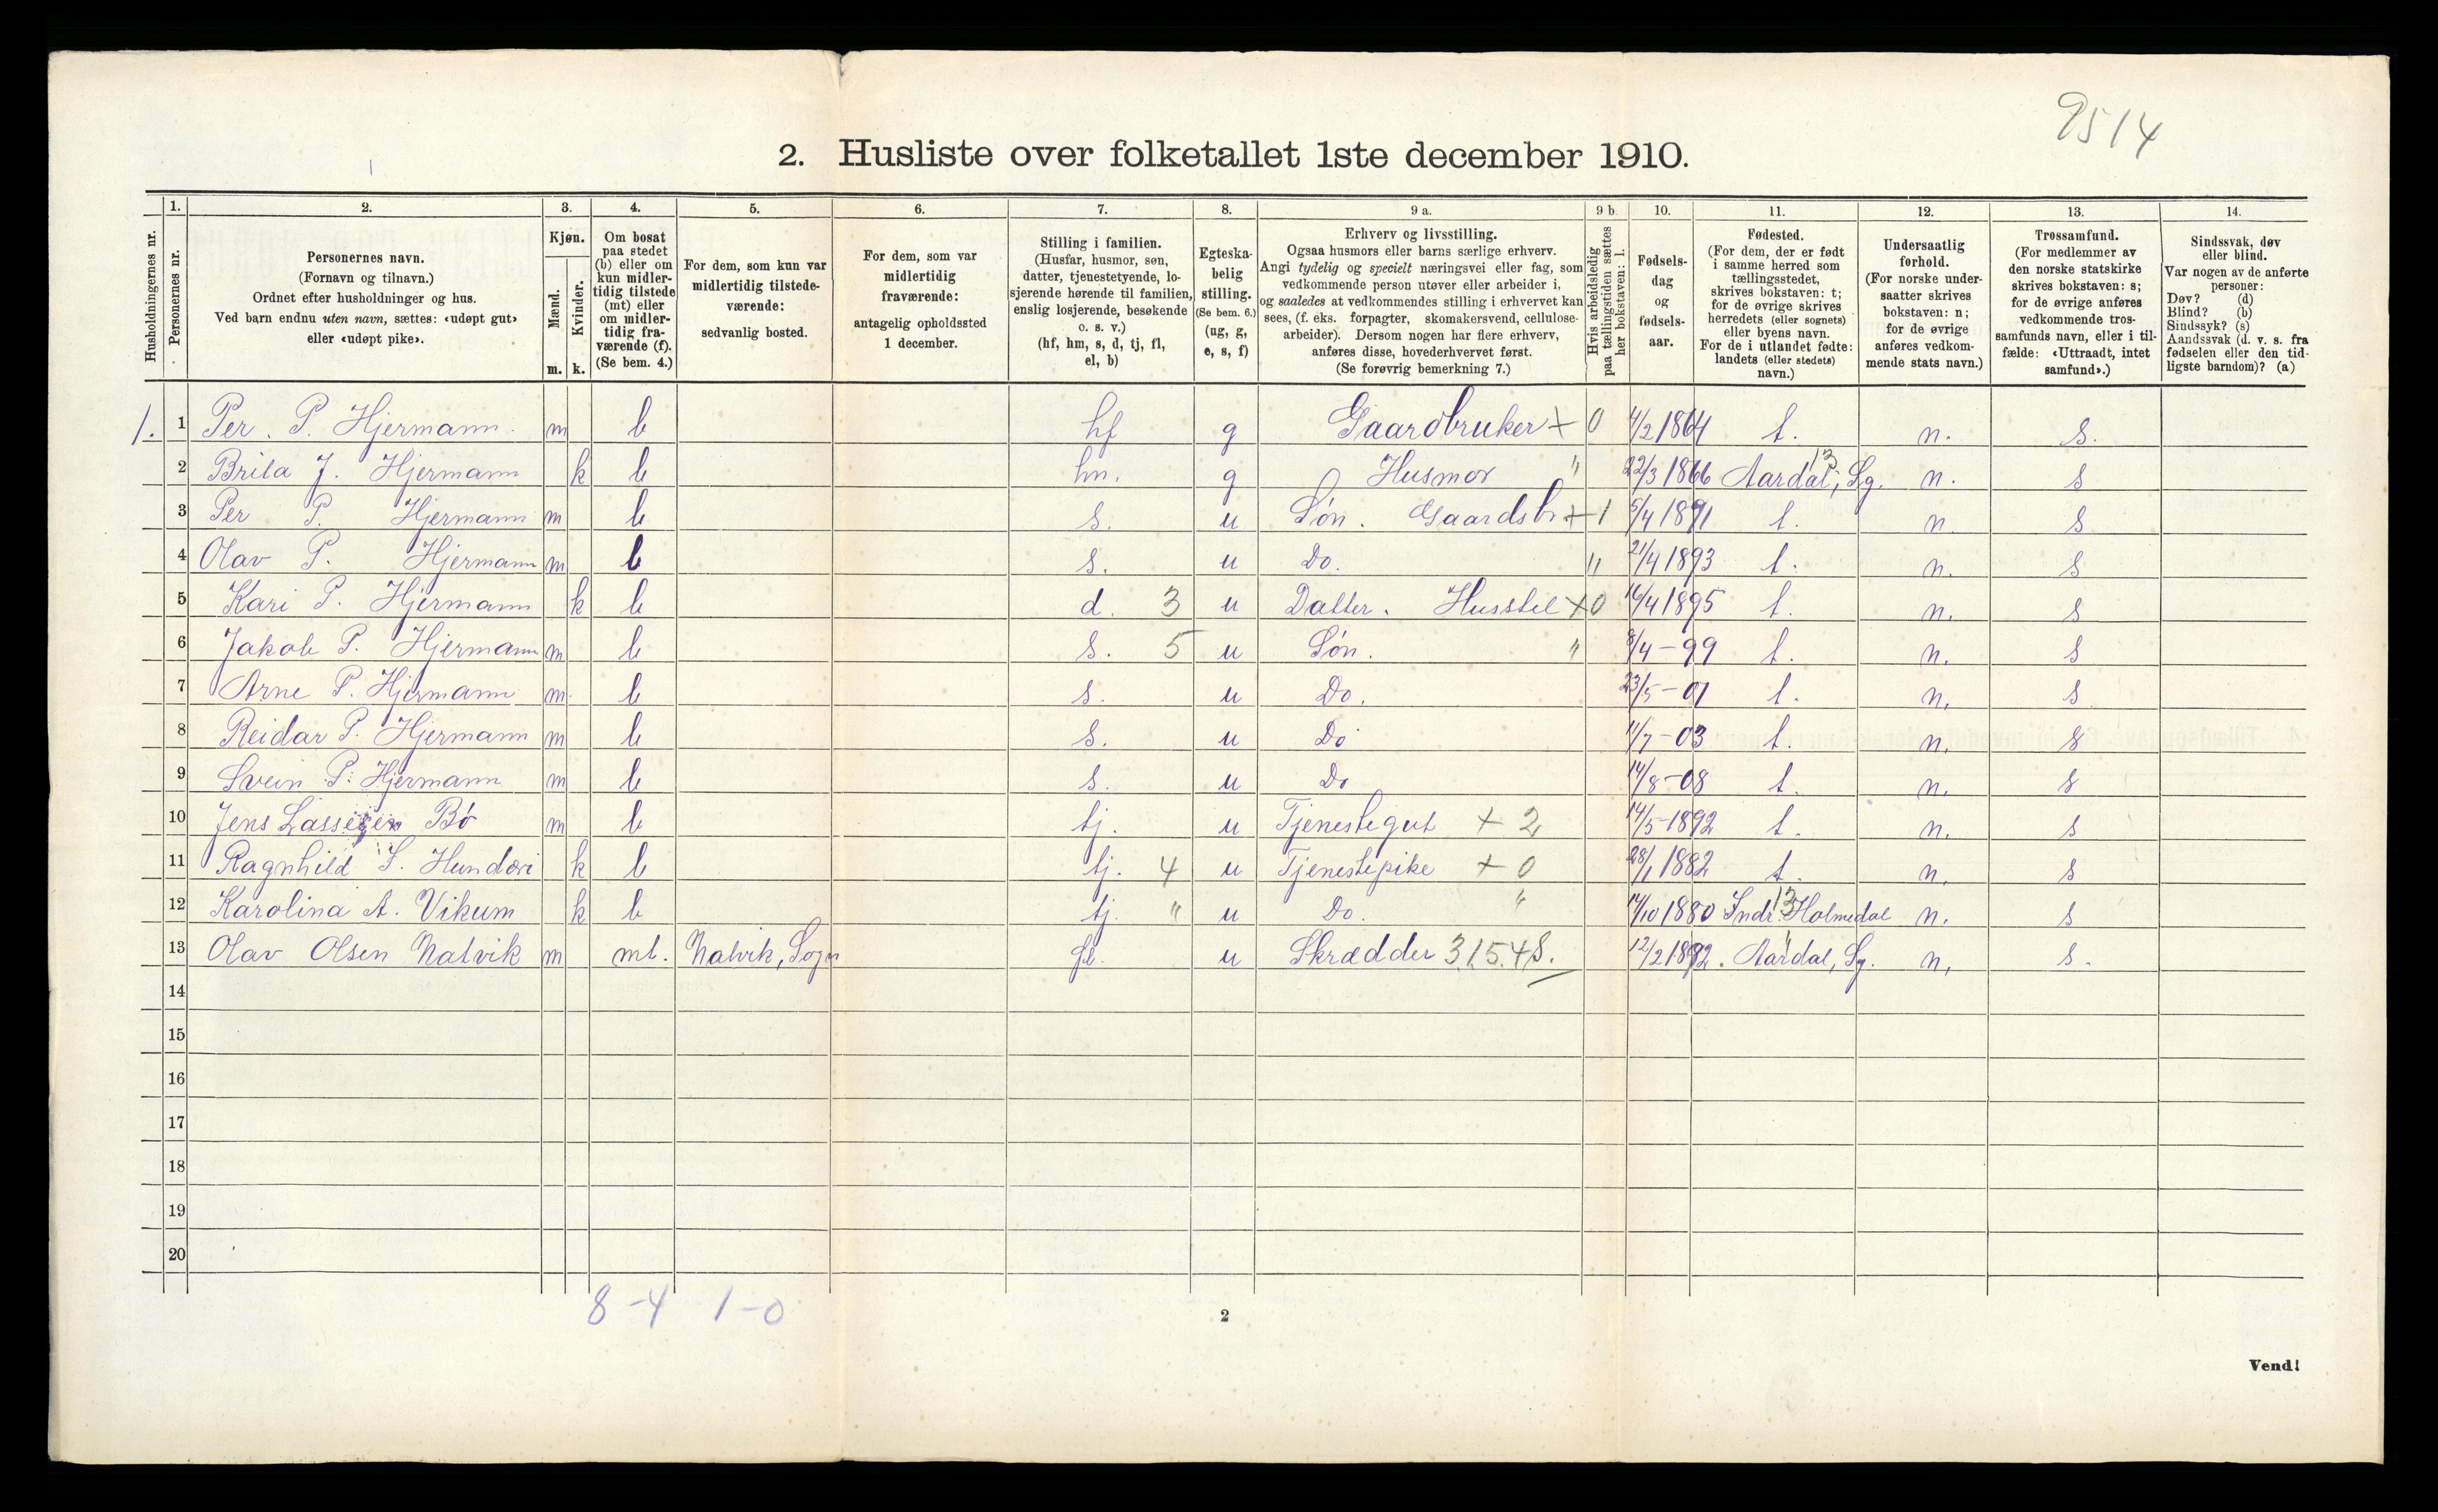 9514
2. Husliste over folketallet 1ste december 1910.
1. 2. 3. 4. 5. 6. 7. 8. 9 a. 9 b 10. 11. 12. 13. 14.
Husholdningernes nr.
Personernes nr.
Personernes navn.
(Fornavn og tilnavn.)
Ordnet efter husholdninger og hus.
Ved barn endnu uten navn, sættes: «udøpt gut»
eller «udøpt pike».
Kjøn.
Mænd.
Kvinder.
m. k.
Om bosat
paa stedet
(b) eller om
kun midler-
tidig tilstede
(mt) eller
om midler-
tidig fra-
værende (f).
(Se bem. 4.)
For dem, som kun var
midlertidig tilstede-
værende:
sedvanlig bosted.
For dem, som var
midlertidig
fraværende:
antagelig opholdssted
1 december.
Stilling i familien.
(Husfar, husmor, søn,
datter, tjenestetyende, lo-
sjerende hørende til familien,
enslig losjerende, besøkende
o. s. v.)
(hf, hm, s, d, tj, fl,
el, b)
Egteska-
belig
stilling.
(Se bem. 6.)
(ug, g,
e, s, f)
Erhverv og livsstilling.
Ogsaa husmors eller barns særlige erhverv.
Angi tydelig og specielt næringsvei eller fag, som
vedkommende person utøver eller arbeider i,
og saaledes at vedkommendes stilling i erhvervet kan
sees, (f. eks. forpagter, skomakersvend, cellulose-
arbeider). Dersom nogen har flere erhverv,
anføres disse, hovederhvervet først.
(Se forøvrig bemerkning 7.)
Hvis arbeidsledig
paa tællingstiden sættes
her bokstaven: l.
Fødsels-
dag
og
fødsels-
aar.
Fødested.
(For dem, der er født
i samme herred som
tællingsstedet,
skrives bokstaven: t;
for de øvrige skrives
herredets (eller sognets)
eller byens navn.
For de i utlandet fødte:
landets (eller stedets)
navn.)
Undersaatlig
forhold.
(For norske under-
saatter skrives
bokstaven: n;
for de øvrige
anføres vedkom-
mende stats navn.)
Trossamfund.
(For medlemmer av
den norske statskirke
skrives bokstaven: s;
for de øvrige anføres
vedkommende tros-
samfunds navn, eller i til-
fælde: «Uttraadt, intet
samfund».)
Sindssvak, døv
eller blind.
Var nogen av de anførte
personer:
Døv? (d)
Blind? (b)
Sindssyk? (s)
Aandssvak (d. v. s. fra
fødselen eller den tid-
ligste barndom)? (a)
1. 1 Per. P. Hjermann. m b hf g Gaardbruker + 0 4/2 1864 t. n. s.
2 Brita J. Hjermann k b hm. g Husmor " 22/3 1866 Aardal, Sg. 13 n. s
3 Per P. Hjermann m b s. u Søn. Gaardsbr + 1 5/4 1891 t. n s
4 Olav P. Hjermann m b s. u Do. " 21/4 1893 t. n. s
5 Kari P. Hjermann k b d. 3 u Datter. Husstel + 0 16/4 1895 t. n. s
6 Jakob P. Hjermann m b s. 5 u Søn. " 8/4 - 99 t. n. s
7 Arne P. Hjermann m. b s. u Do. 23/5 - 01 t. n. s
8 Reidar P. Hjermann m b s. u Do 11/7 - 03 t. n. s
9 Svein P. Hjermann m b s. u Do 14/8 - 08 t. n. s
10 Jens Bø m b tj. u Tjenestegut + 2 14/5 - 1892 t. n. s
11 Ragnhild S. Hundæri k b tj. 4 u Tjenestepike + 0 28/1 1882 t. n. s
12 Karolina A. Vikum k b tj. " u Do. " 14/10 1880 Indr. Holmedal 13 n. s
13 Olav Olsen Natvik m mt. Natvik, Sogn fl. u Skrædder 3.15.48. 12/2 1892. Aardal, Sg. n. s.
14
15
16
17
18
19
20
8 - 4 1 - 0
2
Vend!